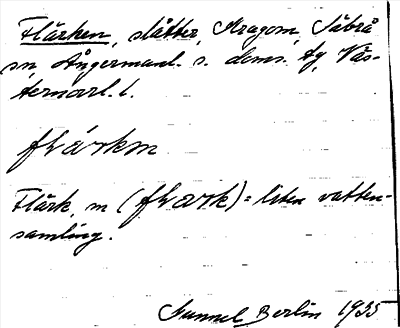 Flärken, slåtter, Kragom, Säbrå
sn, Ångermanl. s. doms. tg, Väs-
ternorrl. l.
flärkm
Flärk, m (flark) = liten vatten-
samling.
Gunnel Berlin 1935